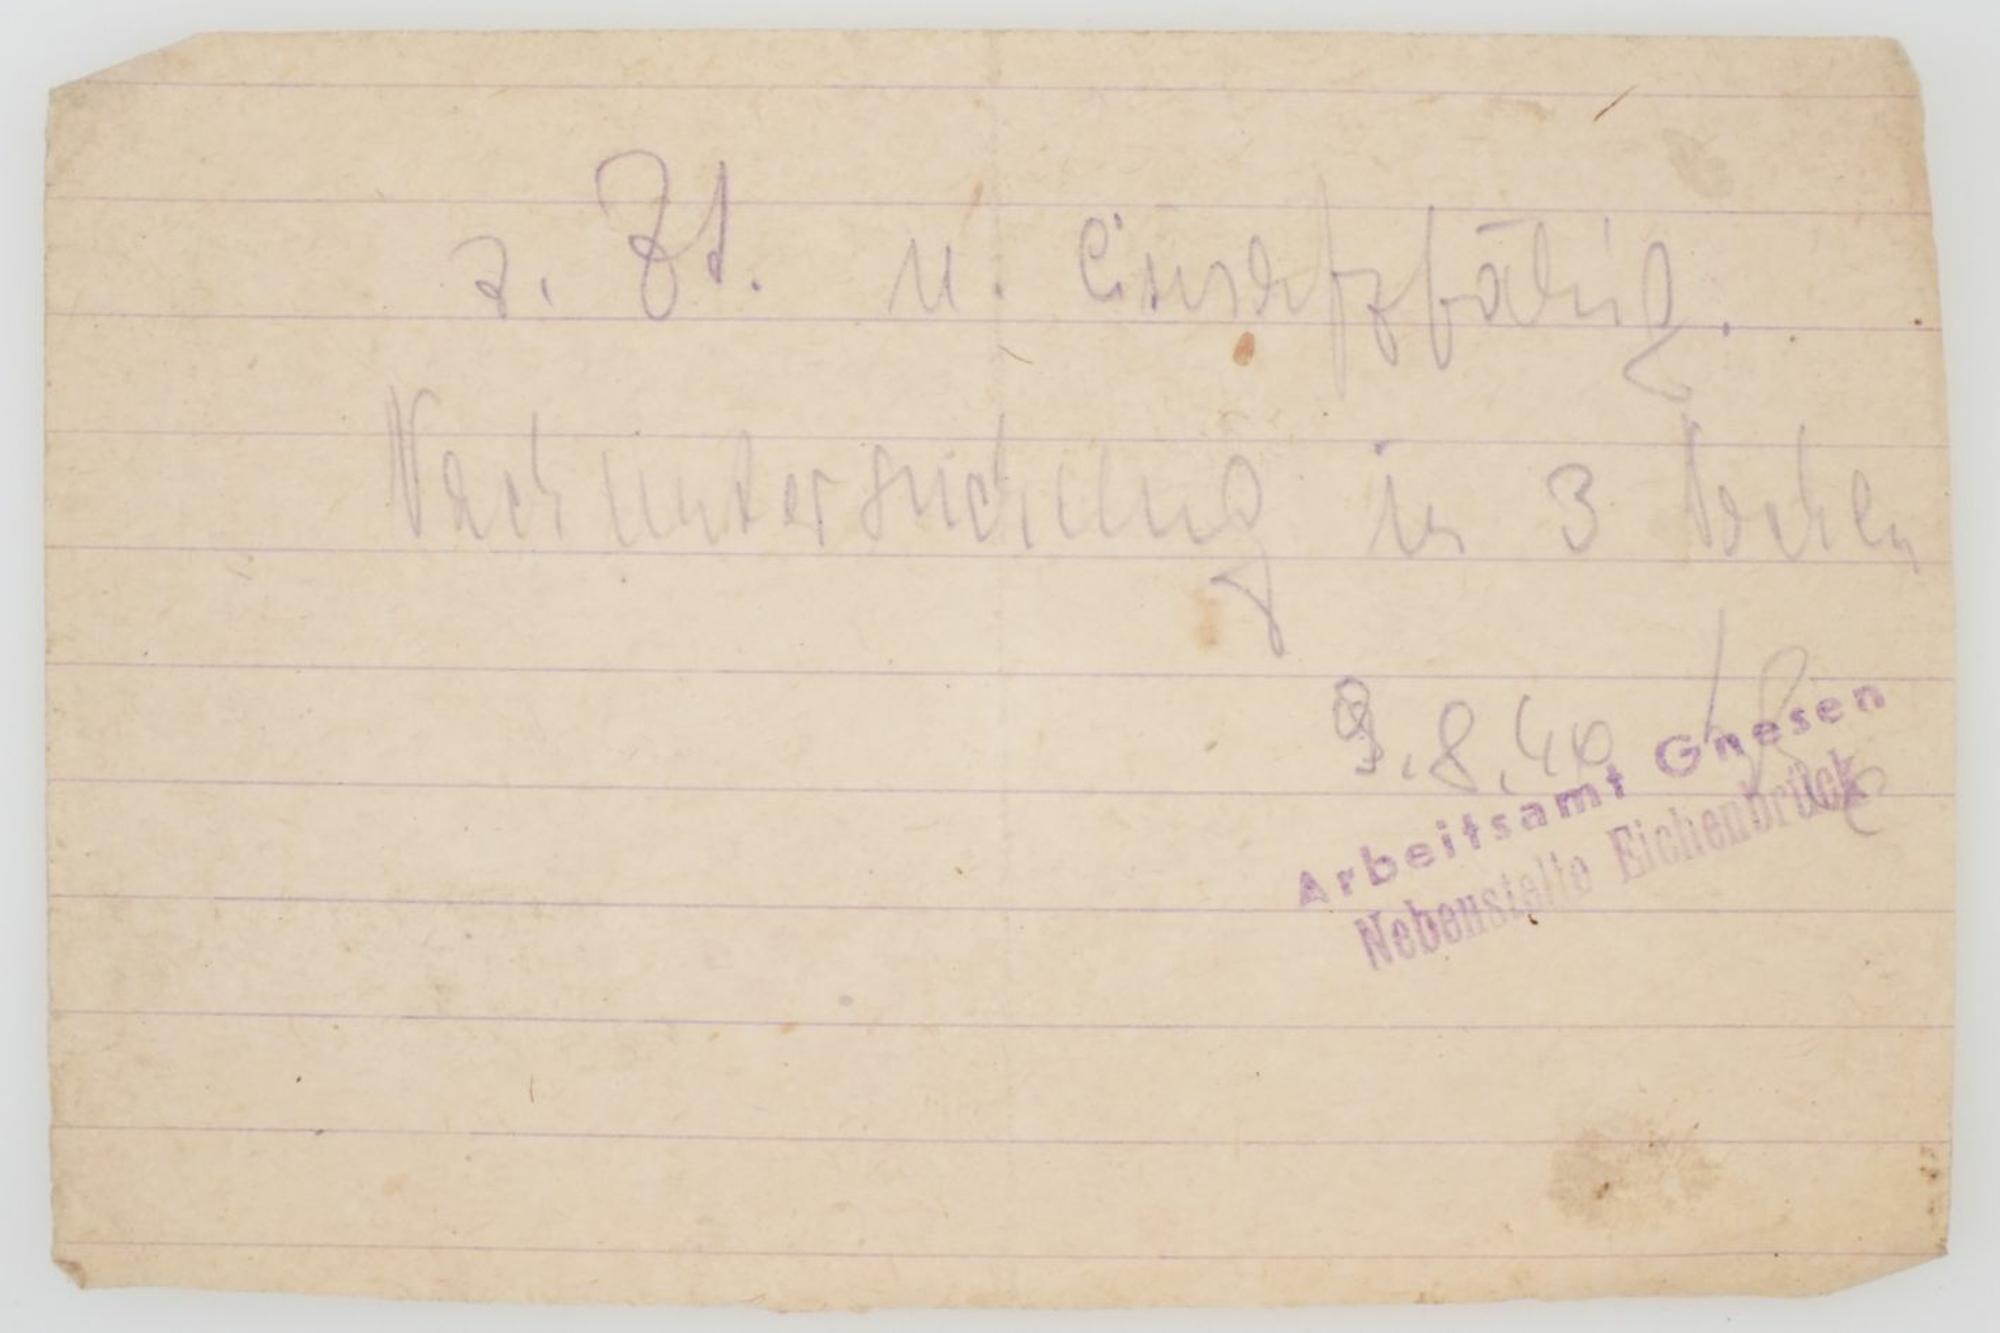 z. Zt. n. einsatzfähig.
Nachuntersuchung in 3 Wochen
9.8.40
Arbeitsamt Gnesen
Nebenstelle Eichenbrück